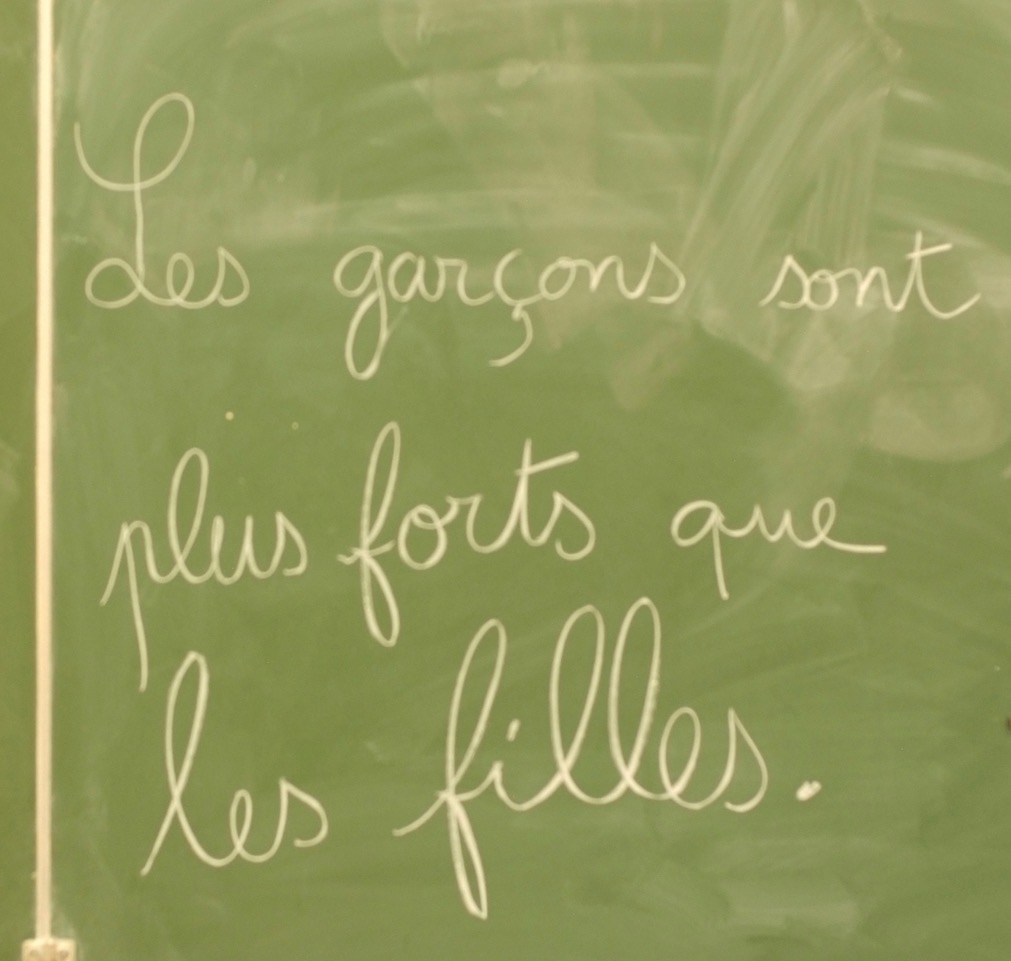 Les garçons sont
plus forts que
les filles.